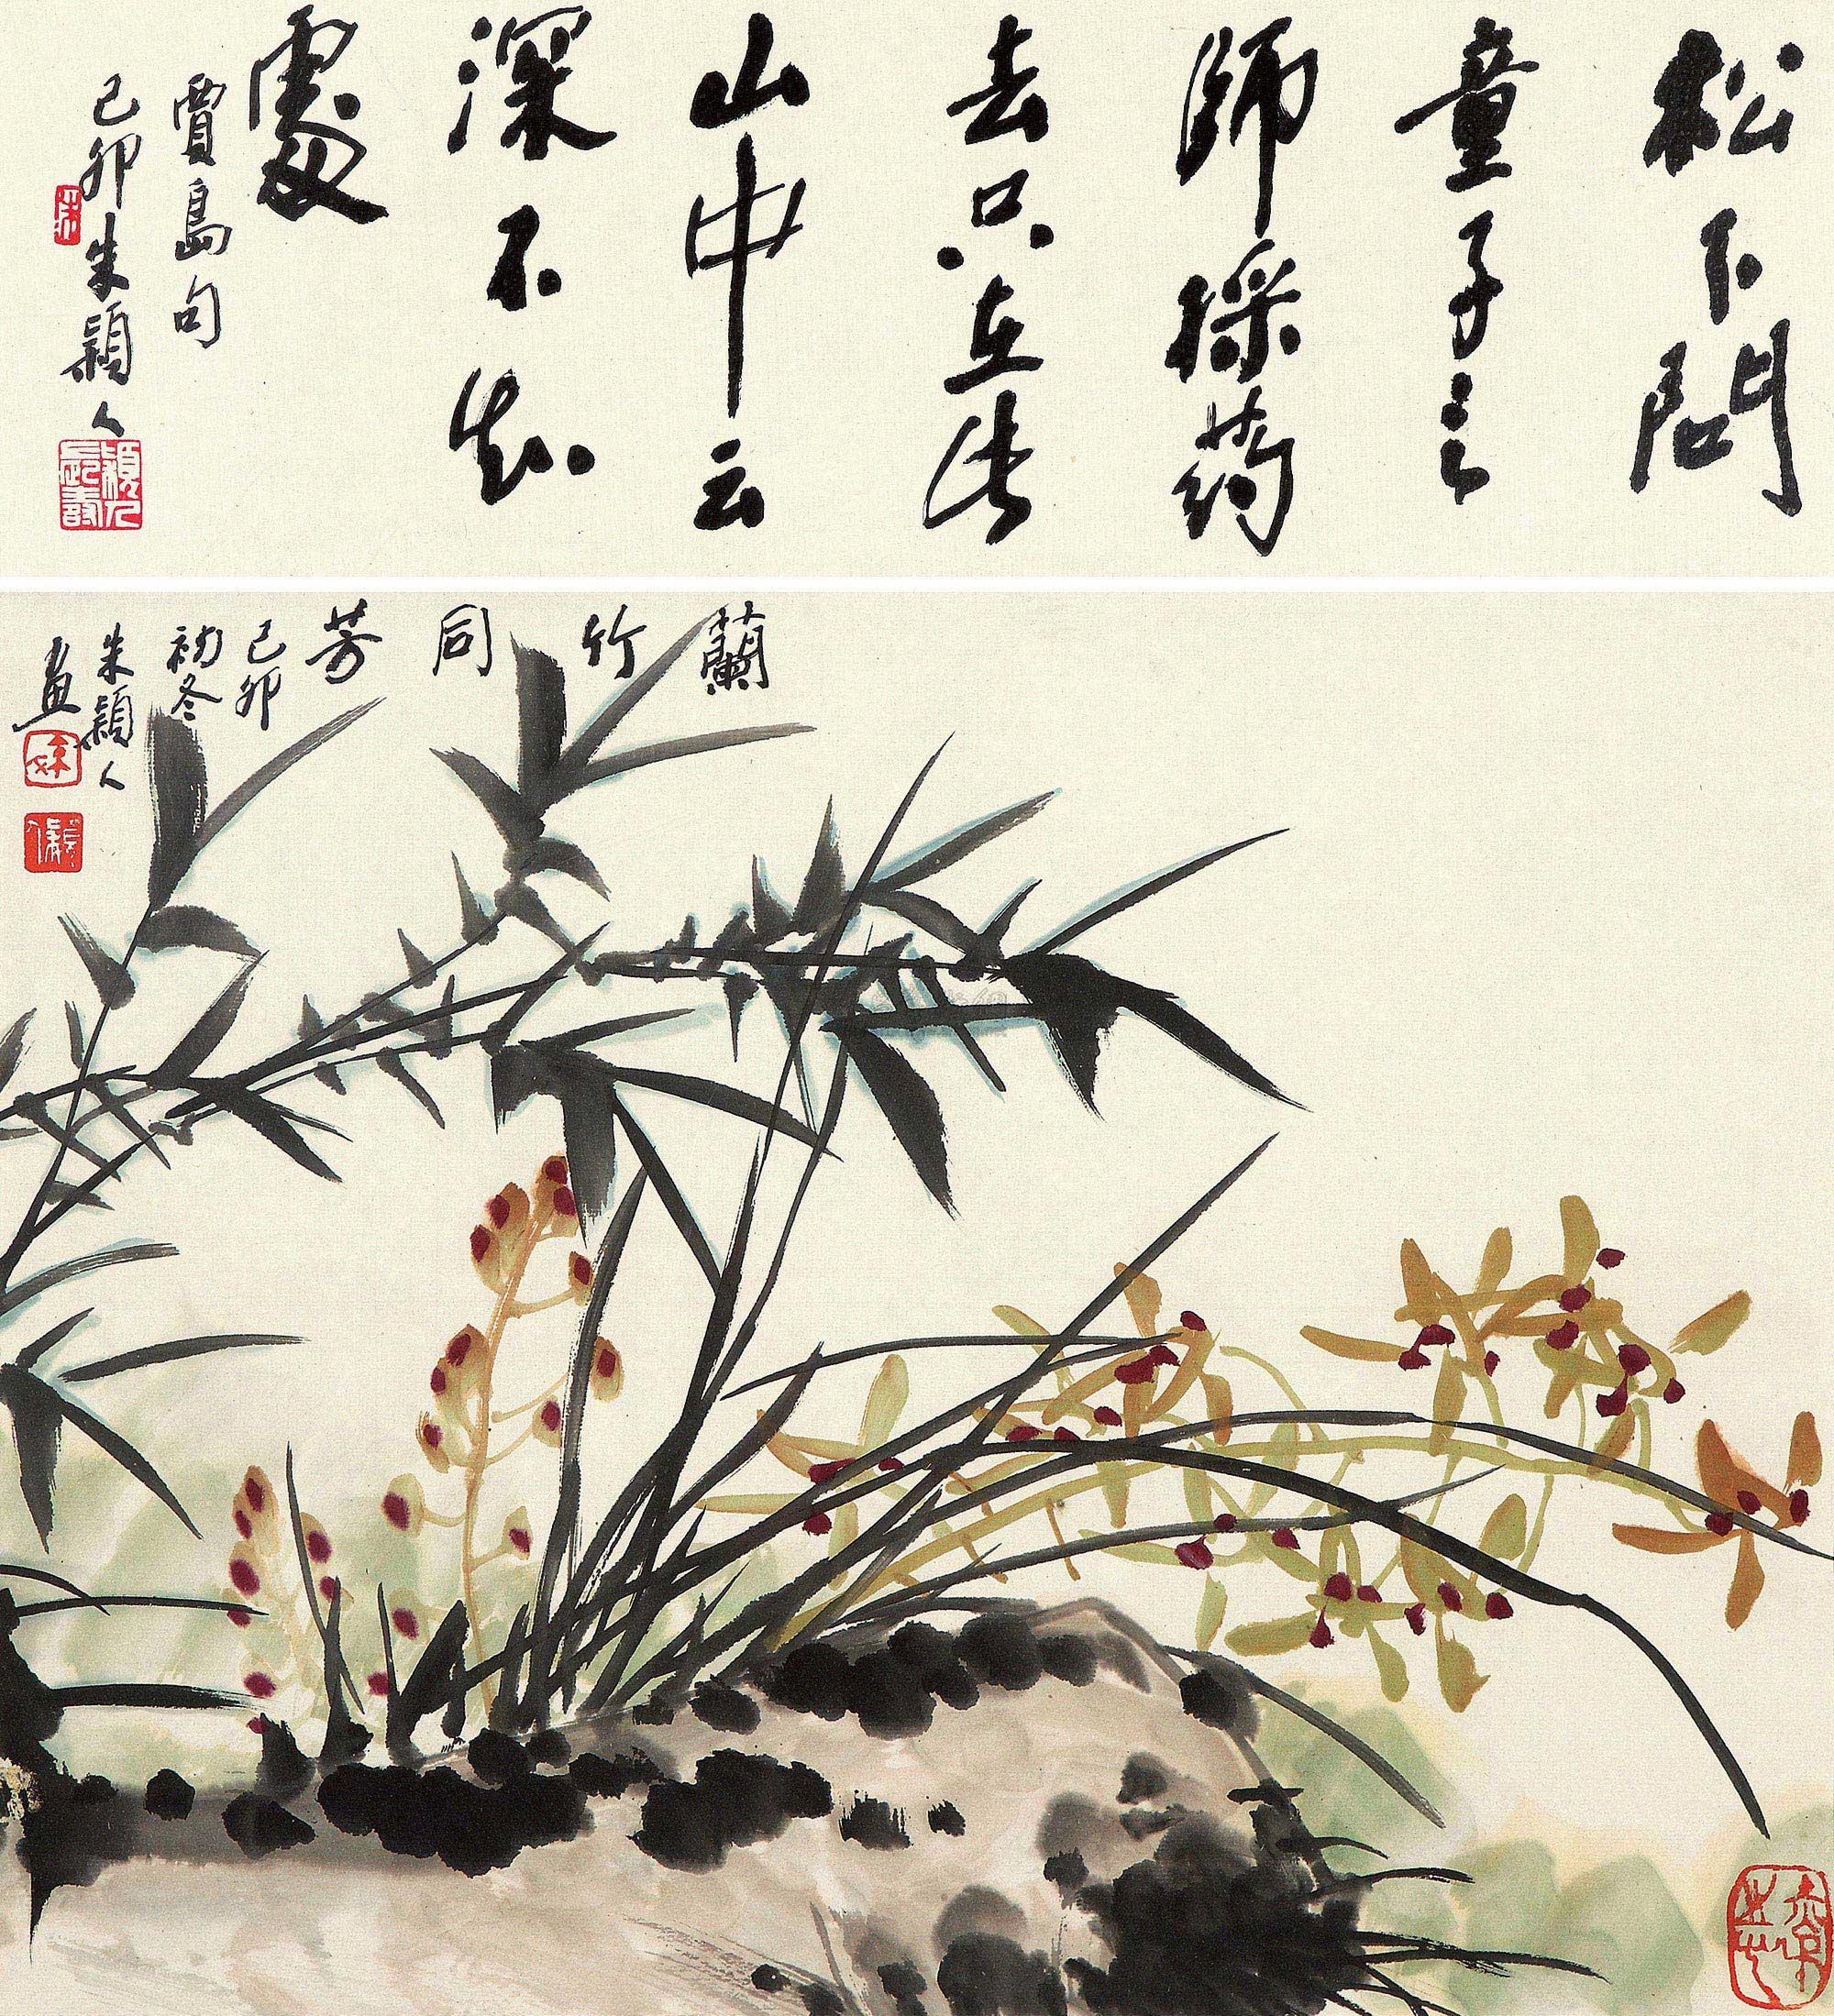 松下問
童子言
師採葯
去只在此
山中云
深不知
處
賈島句
己卯朱穎人
蘭竹同芳
己卯
初冬
朱穎人
畫